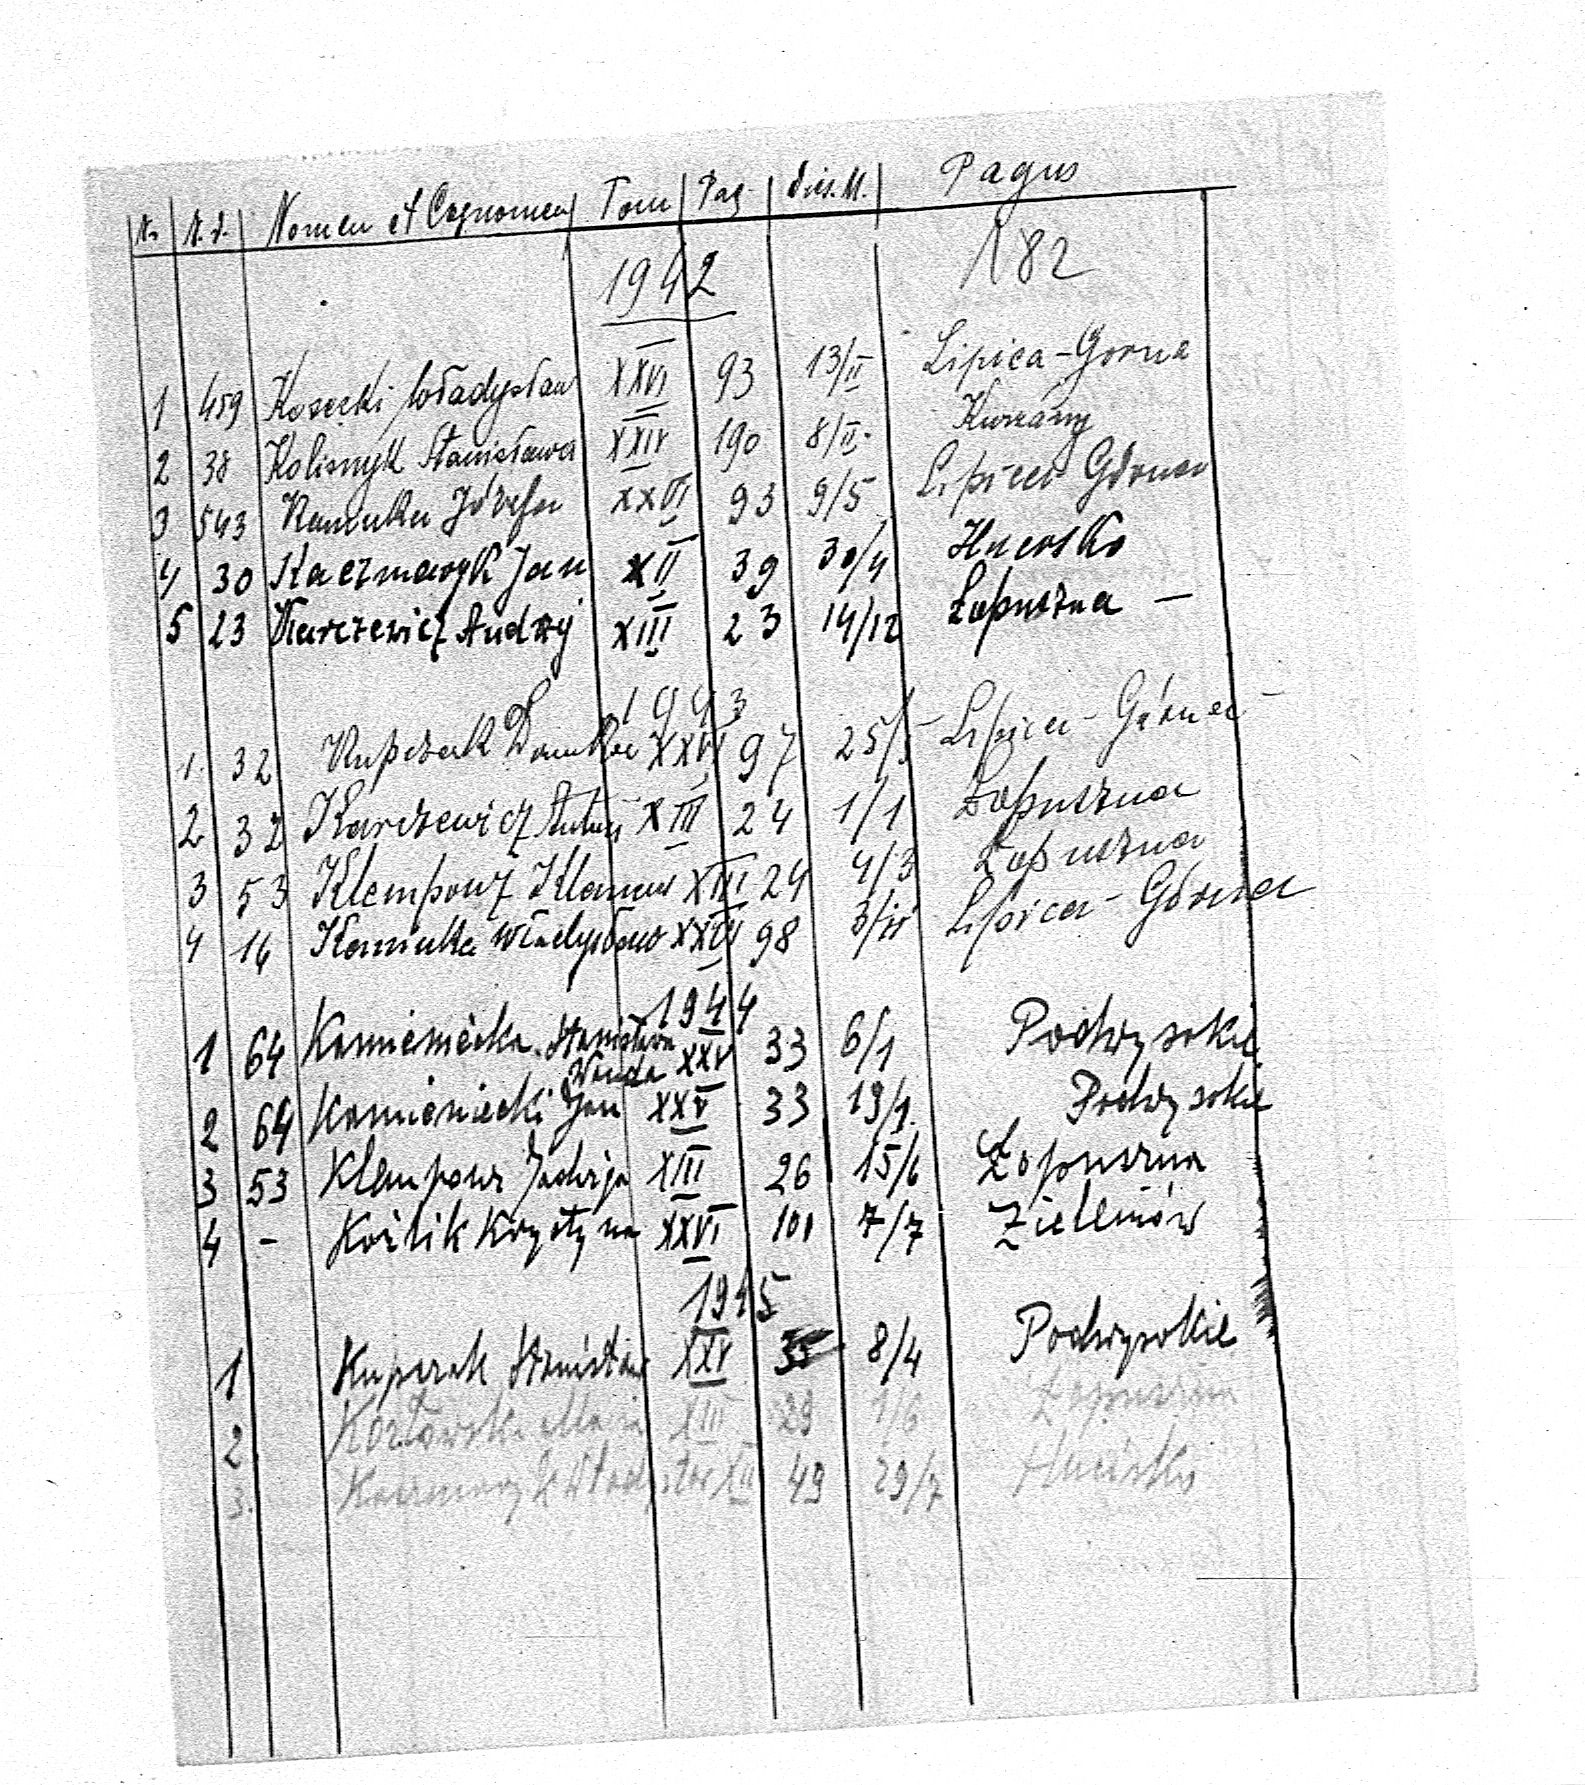 Nr. N.d. Nomen et Cognomen Tom Pag. dies.M. Pagus
1942 182
1 459 Kosecki Władysław XXVI 93 13/II Lipica-Gorna
2 38 Kolisnyk Stanisława XXIV 190 8/II. Kurzany
3 543 Kaminka Józefa XXVI 93 9/5 Lipica Górna
4 30 Kaczmaryk Jan XII 39 30/4 Hucisko
5 23 Karczewicz Andrzij XIII 23 14/12 Łapuszna —
1943
1. 32 Kupczak XXVI 97 25/5 Lipica-Górna
2 32 Karczewicz XIII 24 1/1 Łopuszna
3 53 Klempouz XIII 24 4/3 Łopuszna
4 16 Kaminka Władysław XXVI 98 Lipica-Górna
1944
1 64 Kamieniecka Stanisława XXV 33 6/1 Podwysokie
Wanda
2 64 Kamieniecki Jan XXV 33 19/1. Podwysokie
3 53 Klempouz Jadwiga XIII 26 15/6 Łopuszna
4 - Koźlik Krystyna XXVI 101 7/7 Zielenów
1945
1 Kupczak Stanisław XXV 35 8/4 Podwysokie
2 Kozłowska Maria XIII 29 1/6 Łopuszna
3. Kaczmaryk Władysław XII 49 29/7 Hucisko